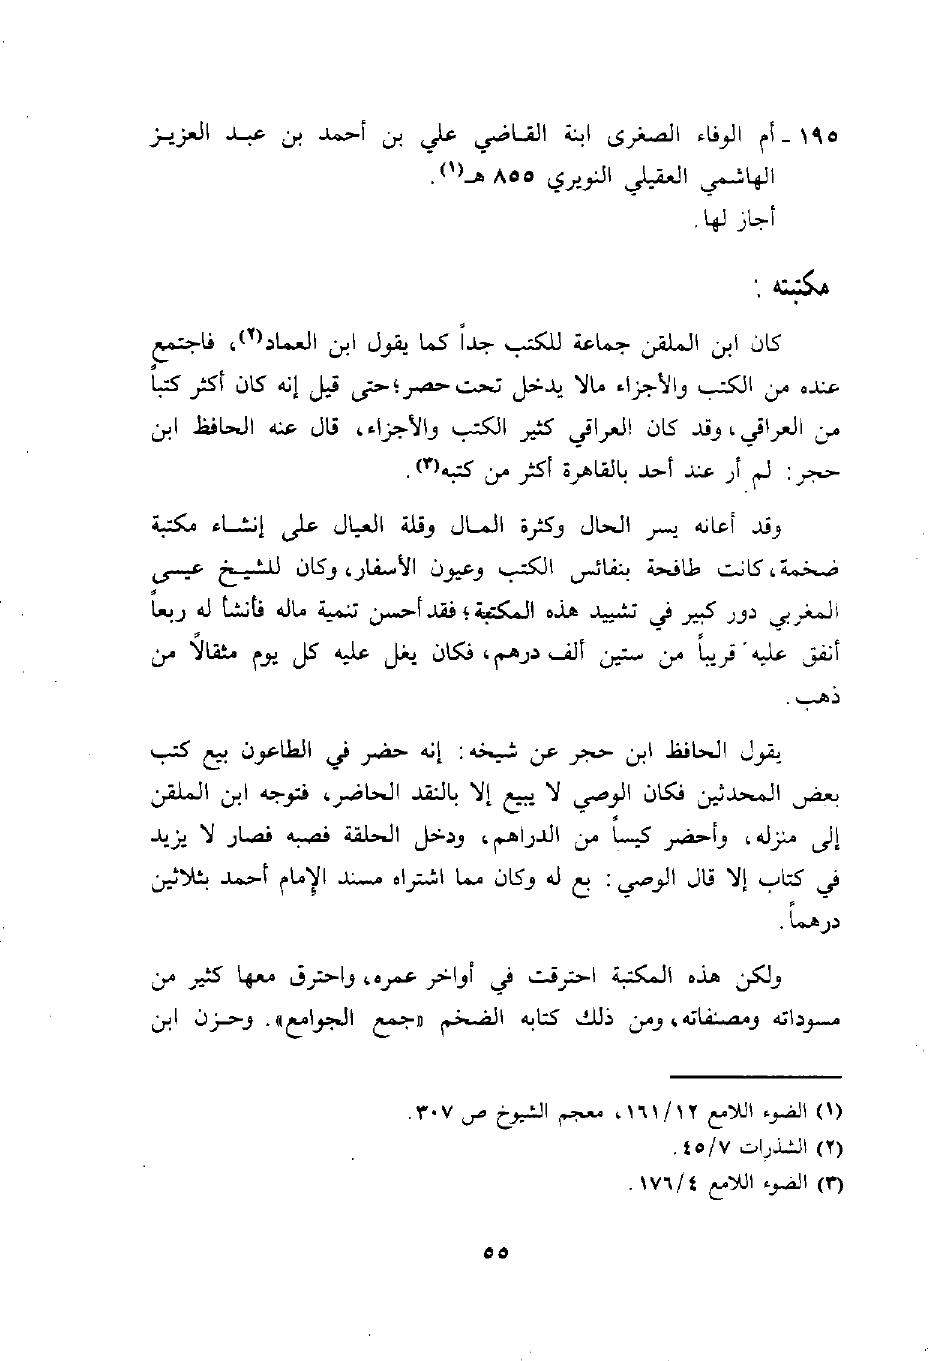 ١٩٥ - أم الوفاء الصغرى ابنة القاضي علي بن أحمد بن عبد العزيز
الهاشمي العقيلي النويري ٨٥٥ هـ(١).
أجاز لها.
مكتبته :
كان ابن الملقن جماعة للكتب جداً كما يقول ابن العماد(٢)، فاجتمع
عنده من الكتب والأجزاء مالا يدخل تحت حصر؛ حتى قيل إنه كان أكثر كتباً
من العراقي، وقد كان العراقي كثير الكتب والأجزاء، قال عنه الحافظ ابن
حجر: لم أر عند أحد بالقاهرة أكثر من كتبه(٣).
وقد أعانه يسر الحال وكثرة المال وقلة العيال على إنشاء مكتبة
ضخمة، كانت طافحة بنفائس الكتب وعيون الأسفار، وكان للشيخ عيسى
المغربي دور كبير في تشييد هذه المكتبة؛ فقد أحسن تنمية ماله فأنشأ له ربعاً
أنفق عليه قريباً من ستين ألف درهم، فكان يغل عليه كل يوم مثقالاً من
ذهب.
يقول الحافظ ابن حجر عن شيخه: إنه حضر في الطاعون بيع كتب
بعض المحدثين فكان الوصي لا يبيع إلا بالنقد الحاضر، فتوجه ابن الملقن
إلى منزله، وأحضر كيساً من الدراهم، ودخل الحلقة فصبه فصار لا يزيد
في كتاب إلا قال الوصي: بع له وكان مما اشتراه مسند الإمام أحمد بثلاثين
درهماً.
ولكن هذه المكتبة احترقت في أواخر عمره، واحترق معها كثير من
مسوداته ومصنفاته، ومن ذلك كتابه الضخم «جمع الجوامع». وحزن ابن
(١) الضوء اللامع ١٦١/١٢، معجم الشيوخ ص ٣٠٧.
(٢) الشذرات ٤٥/٧.
(٣) الضوء اللامع ١٧٦/٤.
٥٥